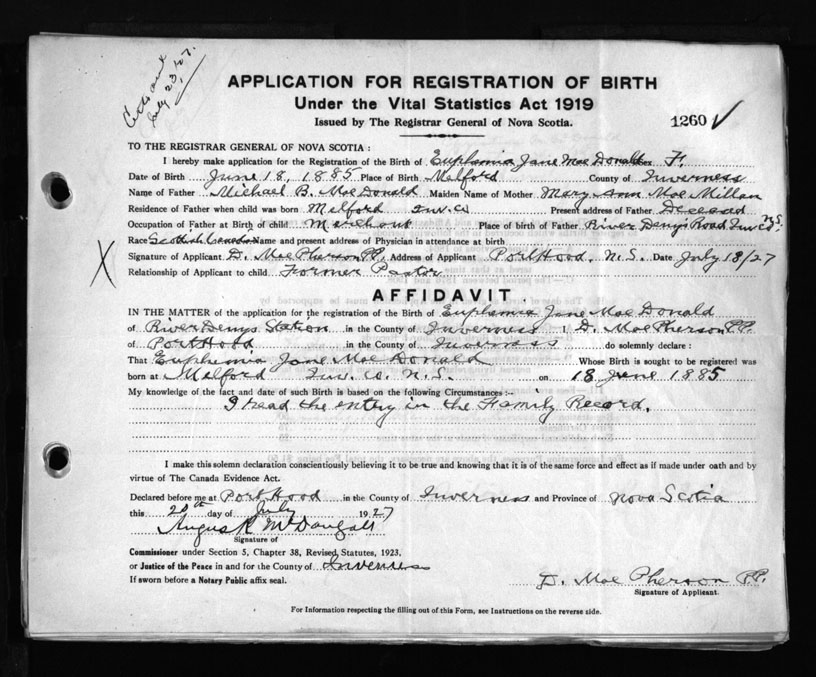 July 23, 27.
APPLICATION FOR REGISTRATION OF BIRTH
Under the Vital Statistics Act 1919
Issued by The Registrar General of Nova Scotia.
1260
TO THE REGISTRAR GENERAL OF NOVA SCOTIA :
I hereby make application for the Registration of the Birth of Euphemia Jane MacDonald sex F.
Date of Birth June 18, 1885 Place of Birth Melford County of Inverness
Name of Father Michael B. MacDonald Maiden Name of Mother Mary Ann MacMillan
Residence of Father when child was born Melford Inv. Co Present address of Father Deceased
Occupation of Father at Birth of child Merchant Place of birth of Father River Denys Road Inv Co. N.S.
Race Scotish Canadian Name and present address of Physician in attendance at birth
Signature of Applicant D. MacPherson P.P. Address of Applicant Port Hood, N.S. Date July 18/27
Relationship of Applicant to child Former Pastor
X
AFFIDAVIT.
IN THE MATTER of the application for the registration of the Birth of Euphemia Jane MacDonald
of River Denys Station in the County of Inverness I D. MacPherson P.P.
of Port Hood in the County of Inverness do solemnly declare :
That Euphemia Jane MacDonald Whose Birth is sought to be registered was
born at Melford Inv. Co. N.S. on 18 June 1885
My knowledge of the fact and date of such Birth is based on the following Circumstances :-
I read the entry in the Family Record.
I make this solemn declaration conscientiously believing it to be true and knowing that it is of the same force and effect as if made under oath and by
virtue of The Canada Evidence Act.
Declared before me at Port Hood in the County of Inverness and Province of Nova Scotia
this 20th day of July 1927
Angus R McDougall
Signature of
Commissioner under Section 5, Chapter 38, Revised Statutes, 1923.
or Justice of the Peace in and for the County of Inverness
If sworn before a Notary Public affix seal.
D. MacPherson P.P.
Signature of Applicant.
For Information respecting the filling out of this Form, see Instructions on the reverse side.